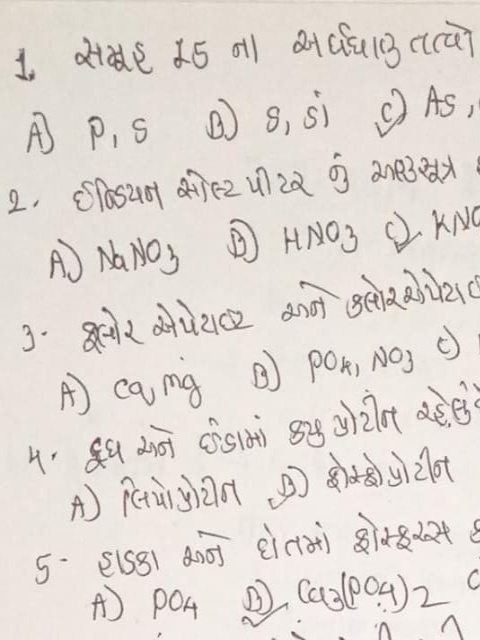 1. સમૂહ 15 ના અર્ધધાતુ તત્વો
A) P, S B) S, Si C) As,
2. ઈન્ડિયન સોલ્ટ પીટર નું અણુસૂત્ર
A) NaNO3 B) HNO3 C) KNO
3. ફ્લોર એપેટાઈટ અને ક્લોરએપેટાઈ
A) Ca, Mg B) PO4, NO3 C)
4. દૂધ અને ઈંડામાં કયુ પ્રોટીન રહેલું
A) લિપોપ્રોટીન B) ફોસ્ફોપ્રોટીન
5. હાડકા અને દાંતમાં ફોસ્ફરસ
A) PO4 B) Ca3(PO4)2 C